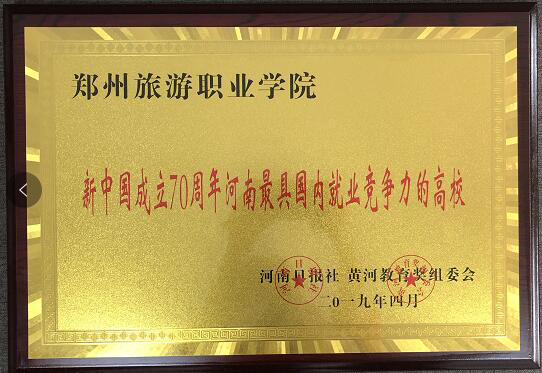 郑州旅游职业学院
新中国成立70周年河南最具国内就业竞争力的高校
河南日报社 黄河教育奖组委会
二0一九年四月